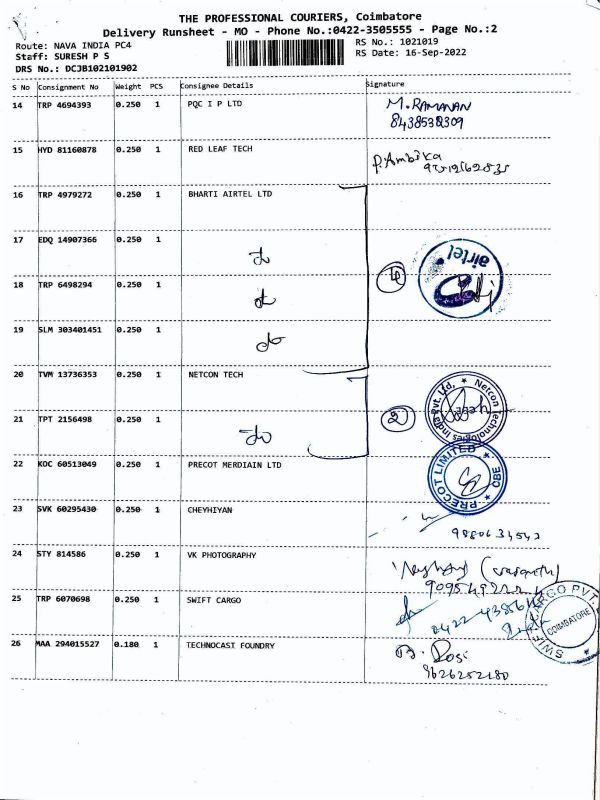 THE PROFESSIONAL COURIERS, Coimbatore
Delivery Runsheet - MO - Phone No.:0422-3505555 - Page No.:2
Route: NAVA INDIA PC4 RS No.: 1021019
Staff: SURESH P S RS Date: 16-Sep-2022
DRS No.: DCJB102101902
S No Consignment No Weight PCS Consignee Details Signature
14 TRP 4694393 0.250 1 PQC I P LTD M. RAMANAN
8438538309
15 HYD 81160878 0.250 1 RED LEAF TECH P. Ambika
16 TRP 4979272 0.250 1 BHARTI AIRTEL LTD
17 EDQ 14907366 0.250 1
do
airtel
18 TRP 6498294 0.250 1 4
do
19 SLM 303401451 0.250 1
do
20 TVM 13736353 0.250 1 NETCON TECH
Netcon Technologies India Pvt. Ltd.
21 TPT 2156498 0.250 1 2
do
22 KOC 60513049 0.250 1 PRECOT MERDIAIN LTD
PRECOT LIMITED CBE
23 SVK 60295430 0.250 1 CHEYHIYAN
24 STY 814586 0.250 1 VK PHOTOGRAPHY
25 TRP 6070698 0.250 1 SWIFT CARGO
SWIFT CARGO PVT.
COIMBATORE
26 MAA 294015527 0.180 1 TECHNOCAST FOUNDRY
9626252180